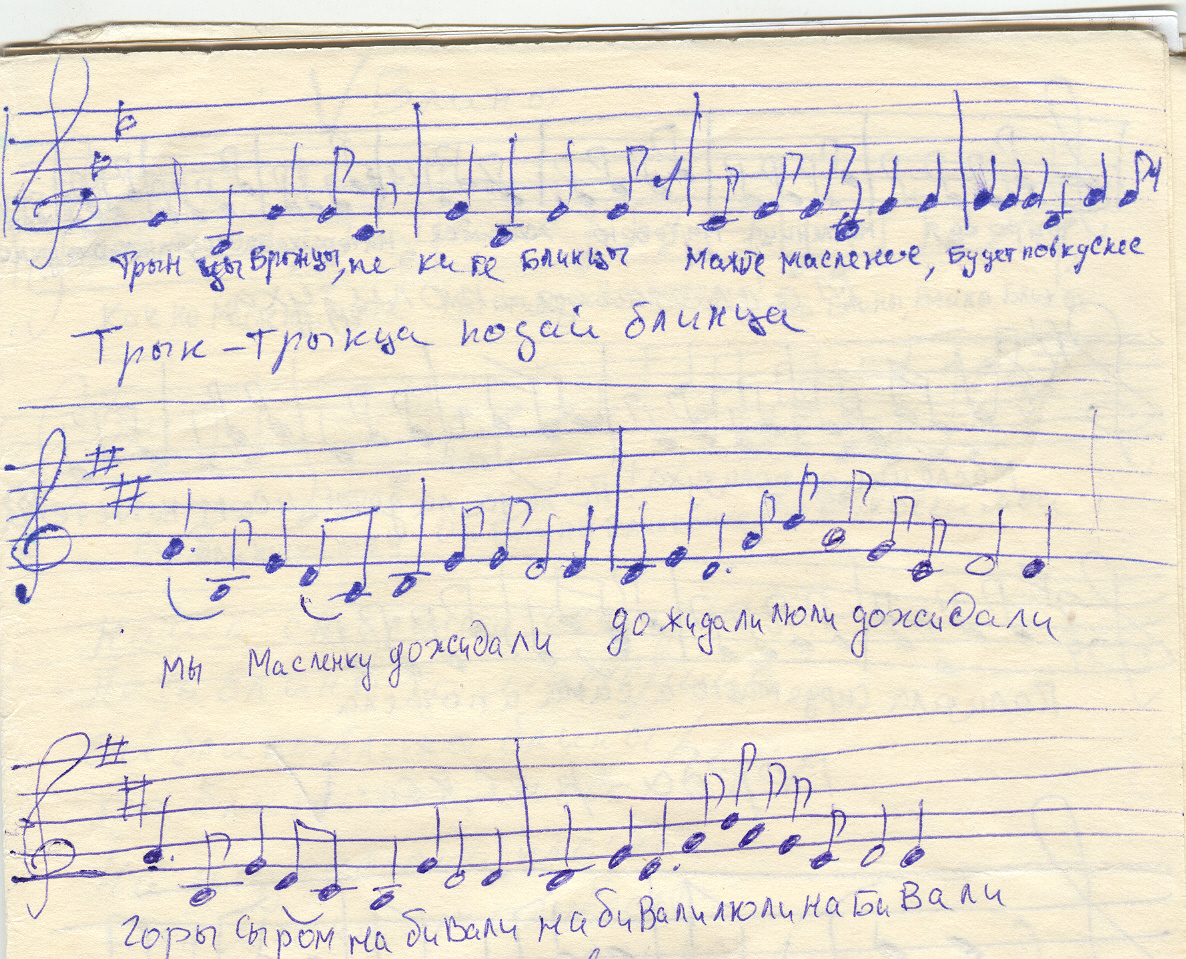 Трын цы Брынцы, пе ки те блинцы Мажте масленее, Будет повкуснее
Трын-трынца подай блинца
Мы Масленку дожидали дожидали люли дожидали
Горы сыром набивали набивали люли набивали